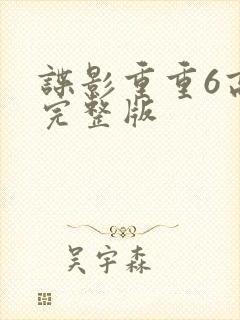 谍影重重6高
完整版
吴宇森